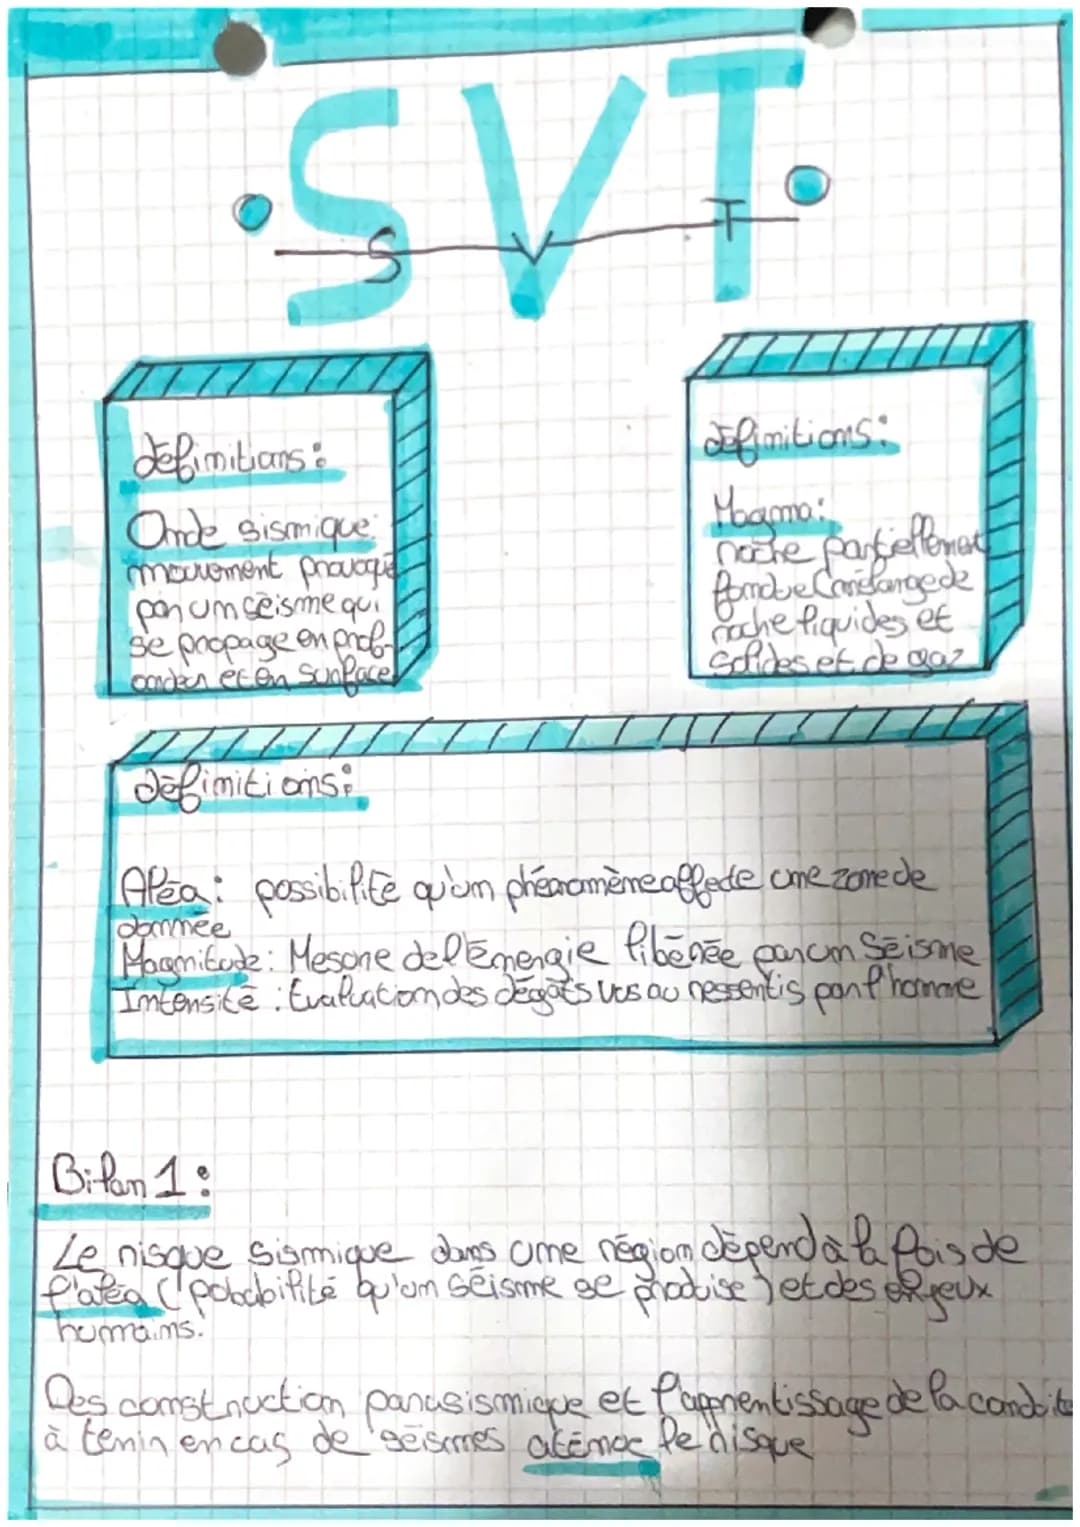 SVT
S V T
définitions:
Onde sismique:
mouvement provoqué
par um séisme qui
se propage en prof-
onder et en surface
définitions:
Magma:
roche partiellement
fondue (mélange de
roche liquides et
solides et de gaz
définitions:
Aléa: possibilité qu'um phénomène affecte une zone de
donnée
Magnitude: Mesure de l'Énergie libérée par um Séisme
Intensité : Evaluation des dégats vus ou ressentis par l'homme
Bilan 1:
Le risque sismique dans une région dépend à la fois de
l'aléa (pobabilité qu'um séisme se produise) et des enjeux
humains.
Des construction parasismique et l'apprentissage de la conduite
à tenir en cas de séismes aténue le risque